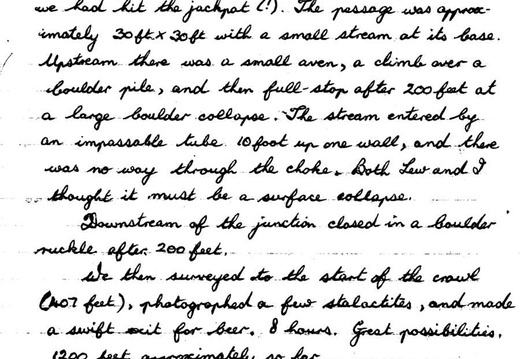 we had hit the jackpot (!). The passage was approx-
imately 30ft x 30ft with a small stream at its base.
Upstream there was a small aven, a climb over a
boulder pile, and then full-stop after 200 feet at
a large boulder collapse. The stream entered by
an impassable tube 10foot up one wall, and there
was no way through the choke. Both Lew and I
thought it must be a surface collapse.
Downstream of the junction closed in a boulder
ruckle after 200 feet.
We then surveyed to the start of the crawl
(407 feet), photographed a few stalactites, and made
a swift exit for beer. 8 hours. Great possibilities.
1200 feet approximately so far